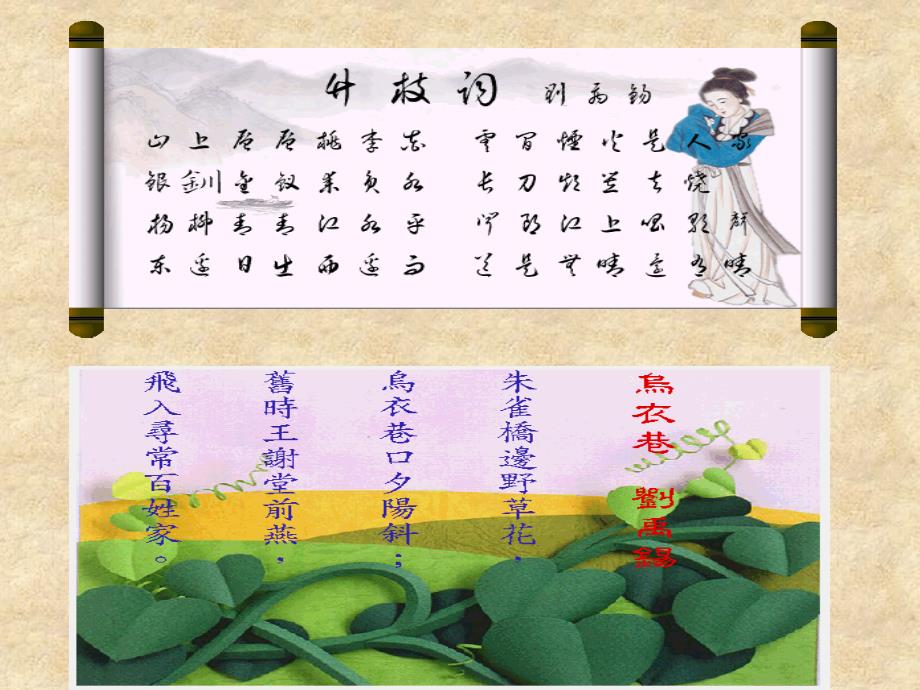 竹枝词 刘禹锡
山上层层桃李花 云间烟火是人家
银釧金钗来负水 长刀短笠去烧
杨柳青青江水平 闻郎江上唱歌声
东边日出西边雨 道是无晴还有晴
烏衣巷 劉禹錫
朱雀橋邊野草花，
烏衣巷口夕陽斜；
舊時王謝堂前燕，
飛入尋常百姓家。